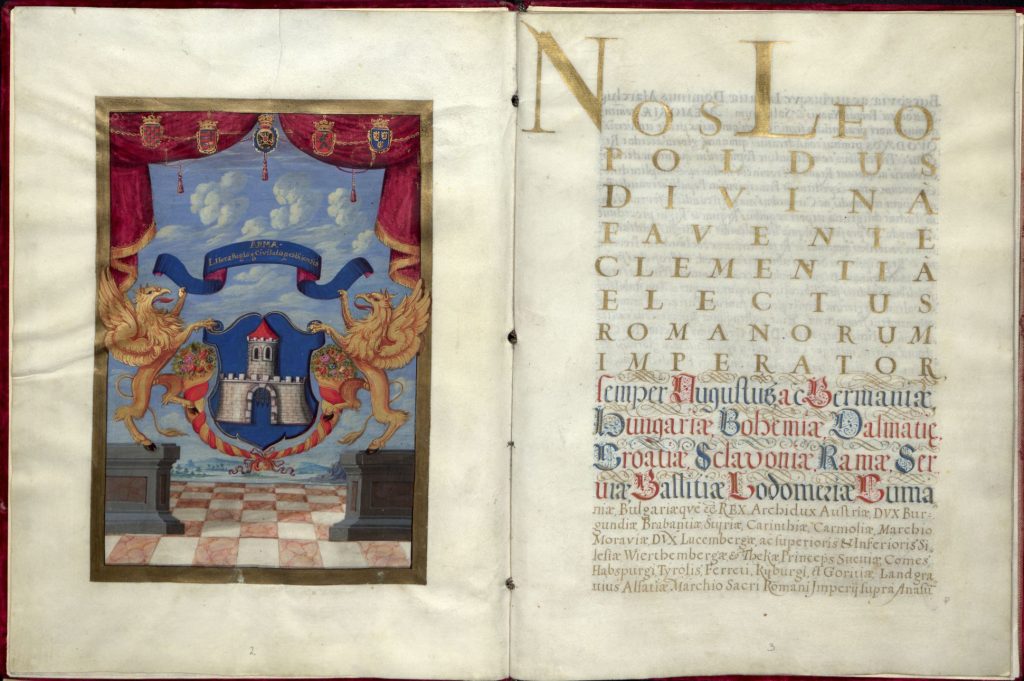 ARMA
Liberæ Regiæq Civitatis pestiensis
NOS LEO
POLDUS
DIVINÂ
FAVENTE
CLEMENTIÂ
ELECTUS
ROMANORUM
IMPERATOR
semper Augustus, ac Germaniæ,
Hungariæ, Bohemiæ, Dalmatiæ,
Croatiæ, Sclavoniæ, Ramæ, Ser
uiæ, Gallitiæ, Lodomeriæ, Cuma
niæ, Bulgariæqve &c̃ REX, Archidux Austriæ, DVX Bur-
gundiæ, Brabantiæ, Styriæ, Carinthiæ, Carnioliæ, Marchio
Moraviæ, DVX Lucembergæ, ac superioris & Inferioris Si,
lesiæ, Wierthembergæ & Thekæ, Princeps Sueviæ, Comes
Habspurgi, Tyrolis, Ferreti, Kyburgi, et Goritiæ, Landgra
uius Alsatiæ, Marchio Sacri Romani Imperij supra Anasũ
2
3